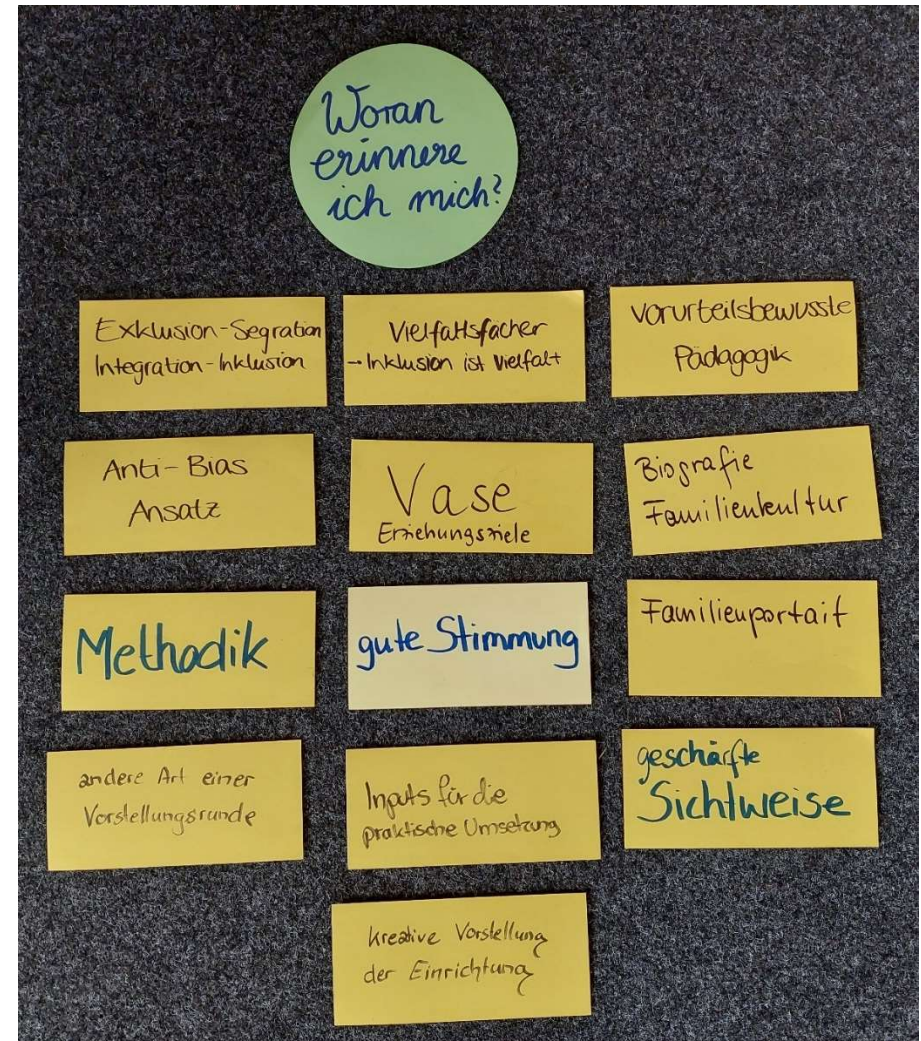 Woran
erinnere
ich mich?
Exklusion-Segration
Integration-Inklusion
Vielfaltsfächer
→ Inklusion ist Vielfalt
Vorurteilsbewusste
Pädagogik
Anti-Bias
Ansatz
Vase
Erziehungsziele
Biografie
Familienkultur
Methodik
gute Stimmung
Familienportait
andere Art einer
Vorstellungsrunde
Inputs für die
praktische Umsetzung
geschärfte
Sichtweise
kreative Vorstellung
der Einrichtung